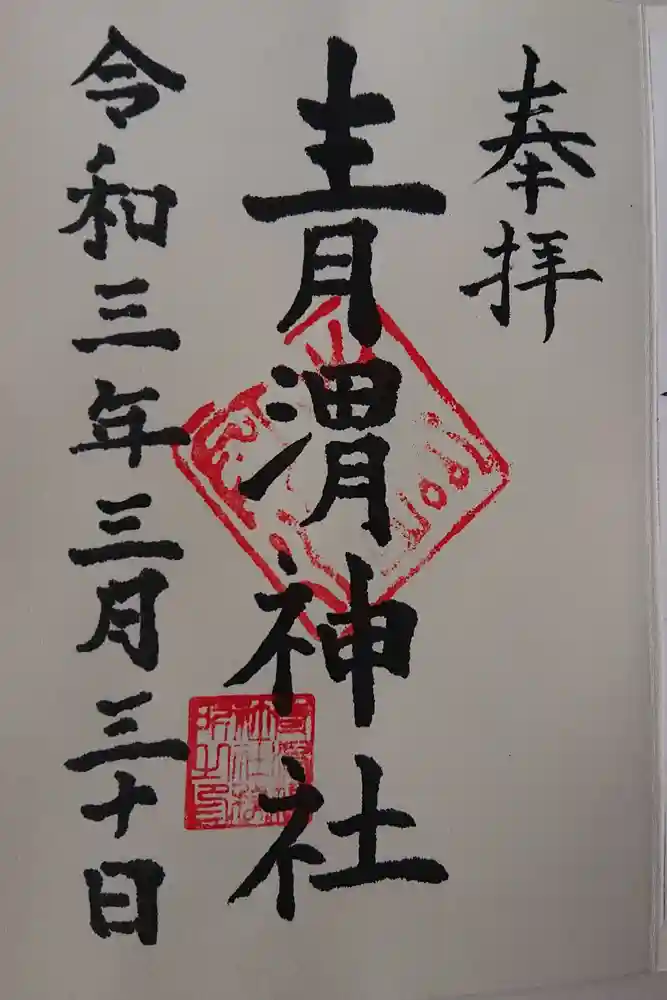 奉拝
青渭神社
令和三年三月三十日